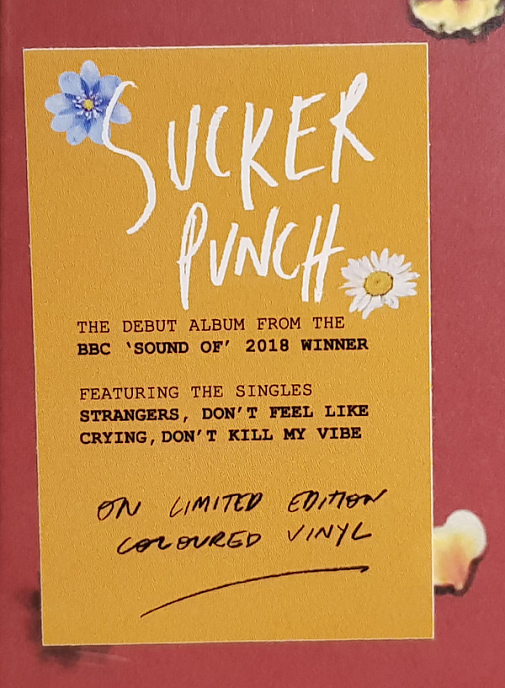 SUCKER
PUNCH
THE DEBUT ALBUM FROM THE
BBC ‘SOUND OF’ 2018 WINNER
FEATURING THE SINGLES
STRANGERS, DON’T FEEL LIKE
CRYING, DON’T KILL MY VIBE
ON LIMITED EDITION
COLOURED VINYL